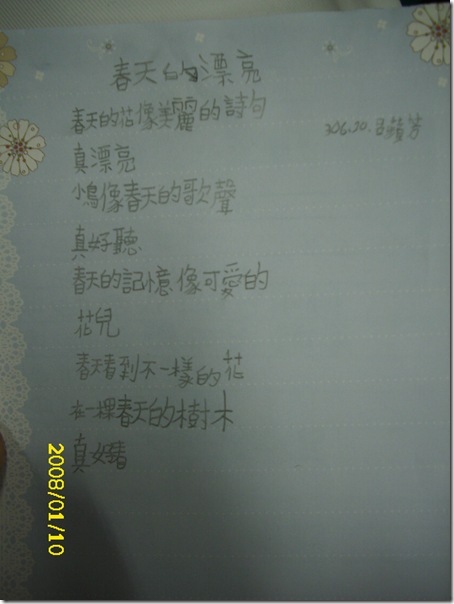 春天的漂亮
春天的花像美麗的詩句
306.20.呂蘋芳
真漂亮
小鳥像春天的歌聲
真好聽
春天的記憶像可愛的
花兒
春天看到不一樣的花
在一棵春天的樹木
真好看
2008/01/10